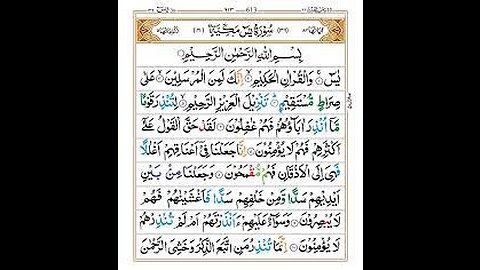 ٦١٣ 613
سُوْرَةُ يٰسٓ مَكِّيَّةٌ
بِسْمِ اللّٰهِ الرَّحْمٰنِ الرَّحِيْمِ
يٰسٓ ۞ وَالْقُرْاٰنِ الْحَكِيْمِ ۞ اِنَّكَ لَمِنَ الْمُرْسَلِيْنَ ۞ عَلٰى
صِرَاطٍ مُّسْتَقِيْمٍ ۞ تَنْزِيْلَ الْعَزِيْزِ الرَّحِيْمِ ۞ لِتُنْذِرَ قَوْمًا
مَّاۤ اُنْذِرَ اٰبَآؤُهُمْ فَهُمْ غٰفِلُوْنَ ۞ لَقَدْ حَقَّ الْقَوْلُ عَلٰۤى
اَكْثَرِهِمْ فَهُمْ لَا يُؤْمِنُوْنَ ۞ اِنَّا جَعَلْنَا فِيْۤ اَعْنَاقِهِمْ اَغْلٰلًا
فَهِيَ اِلَى الْاَذْقَانِ فَهُمْ مُّقْمَحُوْنَ ۞ وَجَعَلْنَا مِنْۢ بَيْنِ
اَيْدِيْهِمْ سَدًّا وَّمِنْ خَلْفِهِمْ سَدًّا فَاَغْشَيْنٰهُمْ فَهُمْ
لَا يُبْصِرُوْنَ ۞ وَسَوَآءٌ عَلَيْهِمْ ءَاَنْذَرْتَهُمْ اَمْ لَمْ تُنْذِرْهُمْ
لَا يُؤْمِنُوْنَ ۞ اِنَّمَا تُنْذِرُ مَنِ اتَّبَعَ الذِّكْرَ وَخَشِيَ الرَّحْمٰنَ